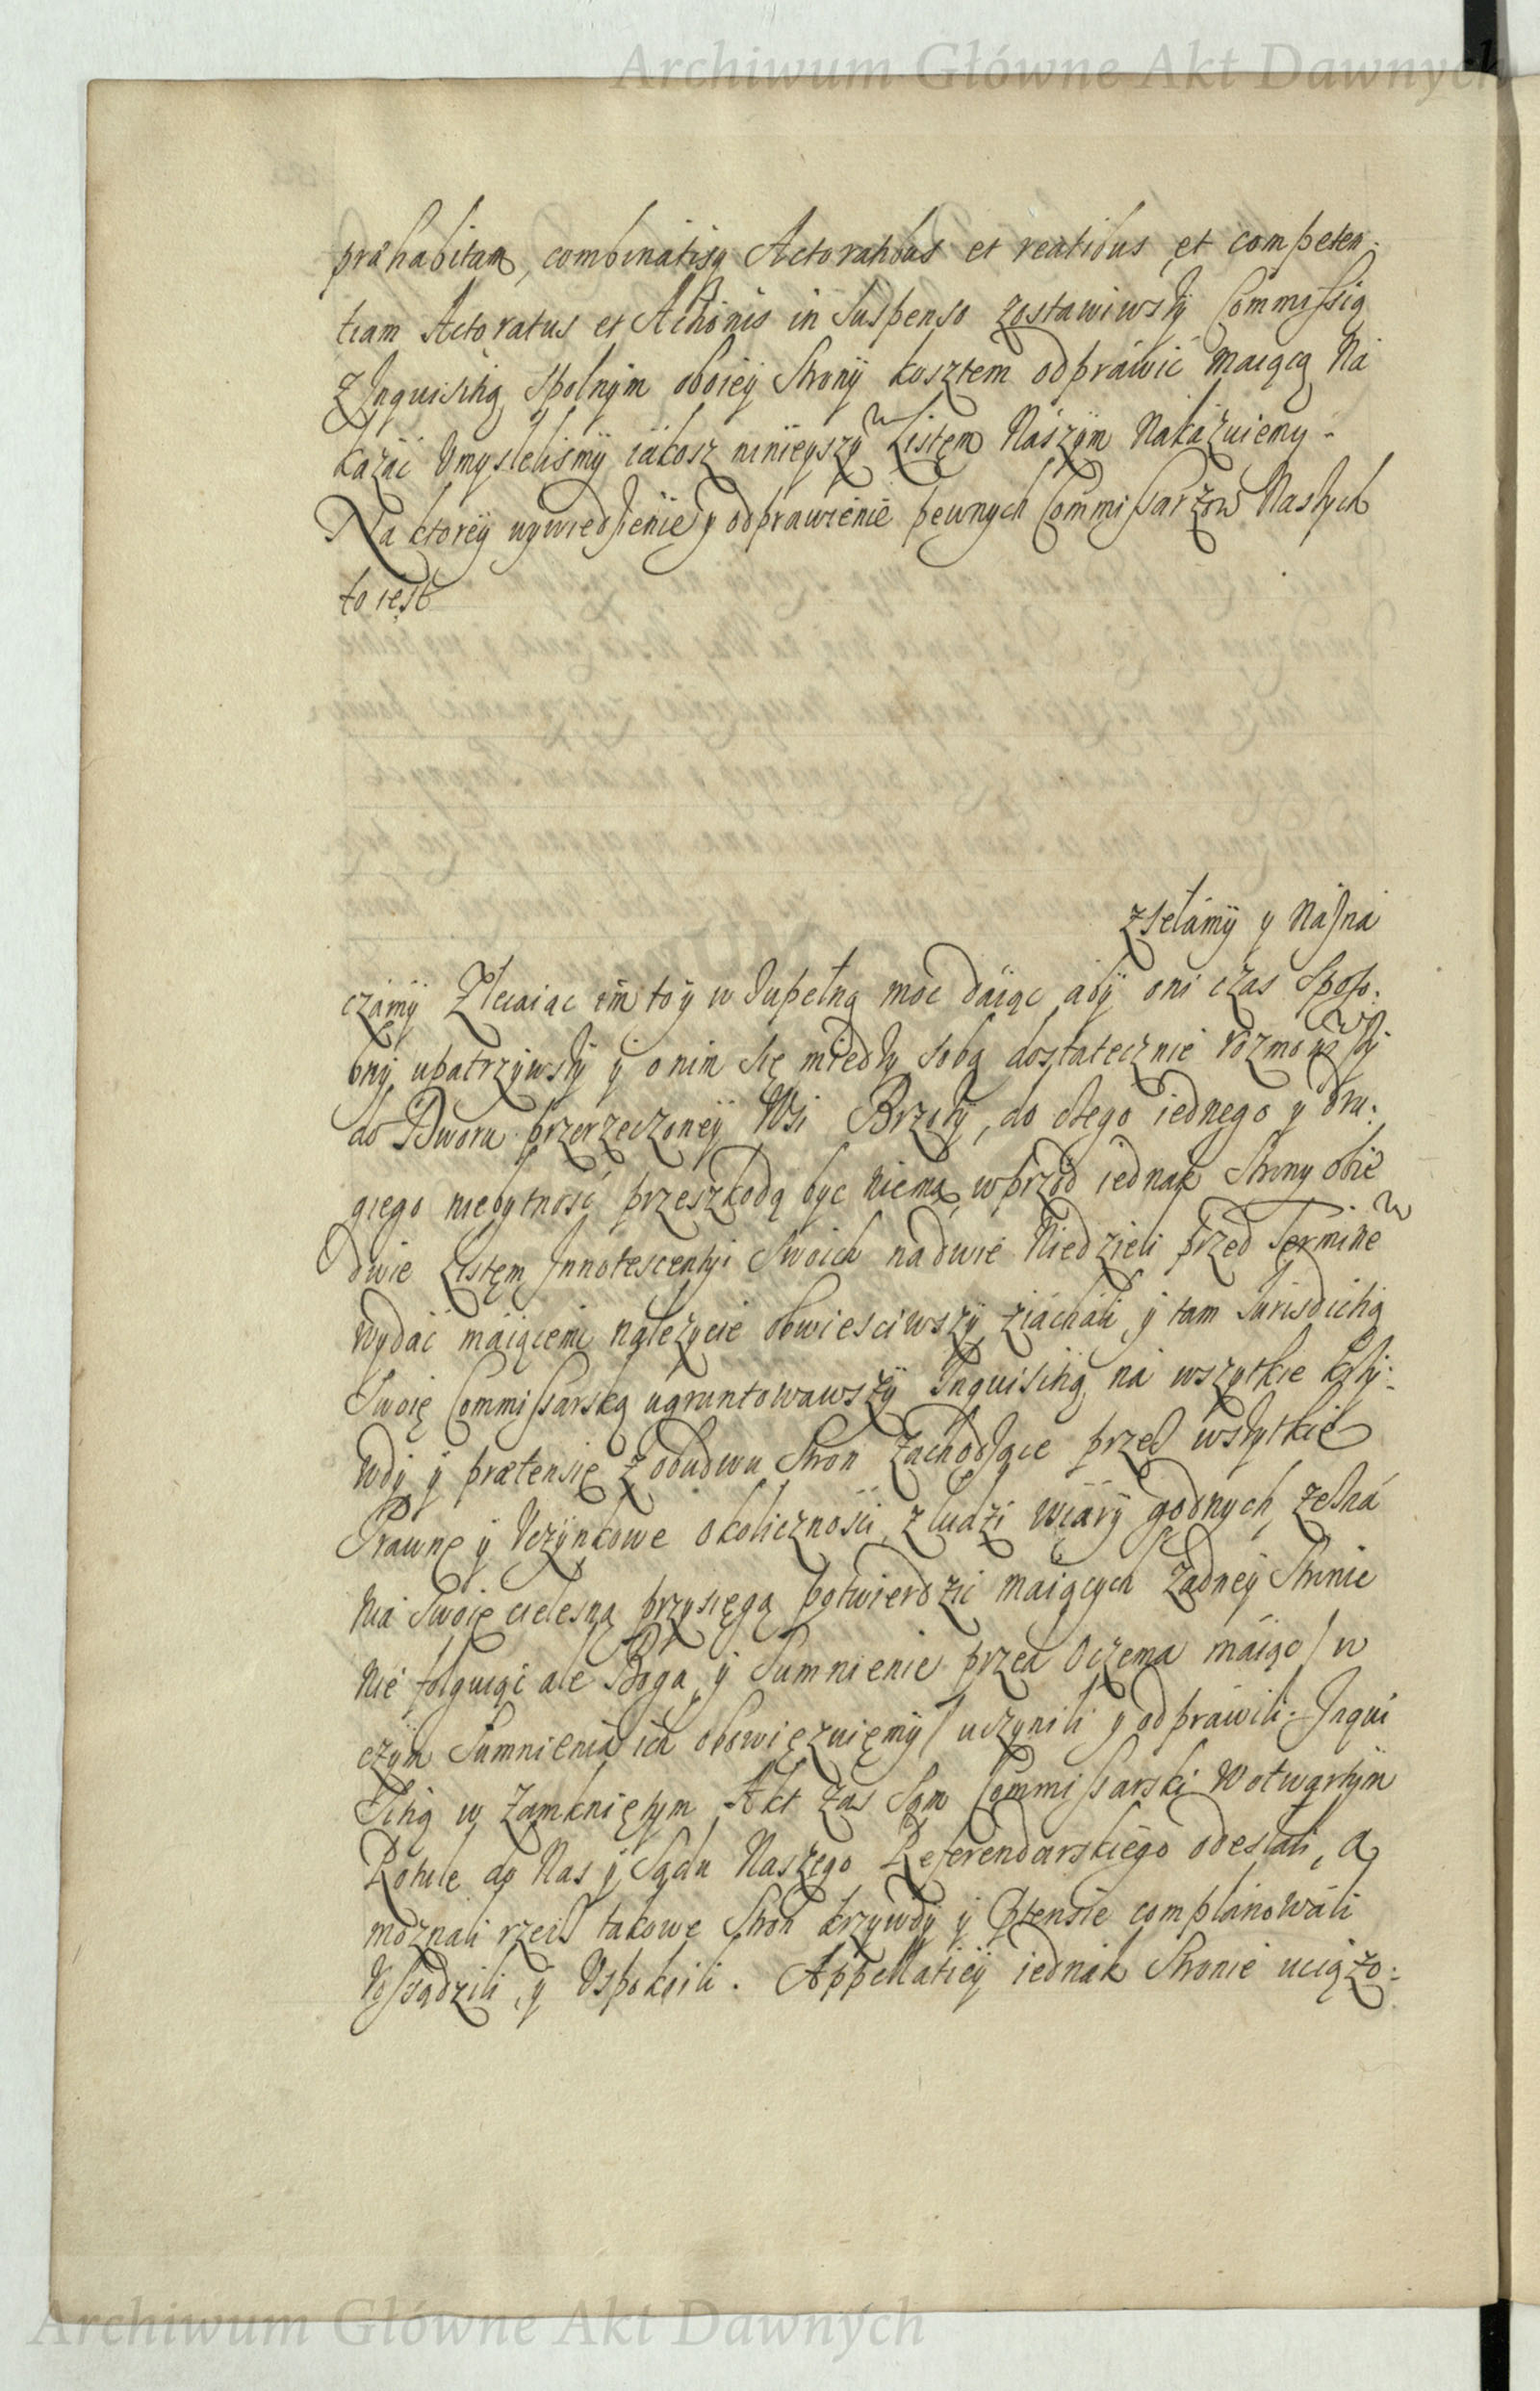 Archiwum Główne Akt Dawnych
1
præhabitam, combinatisq Actoratibus et reatibus et competen-
tiam Actoratus et Actionis in suspenso zostawiwszy Commissią
z Inquisitią spolnym oboiey strony kosztem odprawić maiącą Na
kazać umysleliśmy iakosz ninieyszym Listem Naszym Nakazuiemy -
Na ktorey wywiedzienie y odprawienie pewnych Commissarzow Naszych
to iest
zsełamy y Nazna
czamy Zlecaiąc im to y w zupełną moc daiąc aby oni czas sposo-
bny upatrzywszy y onim się miedzy sobą dostatecznie rozmowiwszy
do Dworu przerzeczoney Wsi Brzozy, do czego iednego y dru-
giego niebytność przeszkodą byc niema, wprzod iednak strony obie
dwie Listem Innotescentyi swoich na dwie Niedzieli przed Terminem
wydać maiącemi należycie obwiesciwszy ziachali y tam Iurisdictią
swoię Commissarską ugruntowawszy Inquisitią na wszytkie krzy-
wdy y prætensie z obudwu stron zachodzące przez wszytkie
Prawne y Uczynkowe okoliczności z ludzi wiary godnych, zezna
nia swoie cielesną przysięgą potwierdzić maiących żadney stronie
nie folguiąc ale Boga y Sumnienie przed Oczema maiąc / w
czym Sumnienia ich obowięzuiemy / uczynili y odprawili. Inqui
sitią w zamkniętym Akt zas sam Commissarski w otwartym
Rotule do Nas y Sądu Naszego Referendarskiego odesłali, a
moznali rzecz takowe stron krzywdy y Ptensie complanowali
Rossądzili, y Uspokoili. Appellatiey iednak stronie uciążo-
Archiwum Główne Akt Dawnych